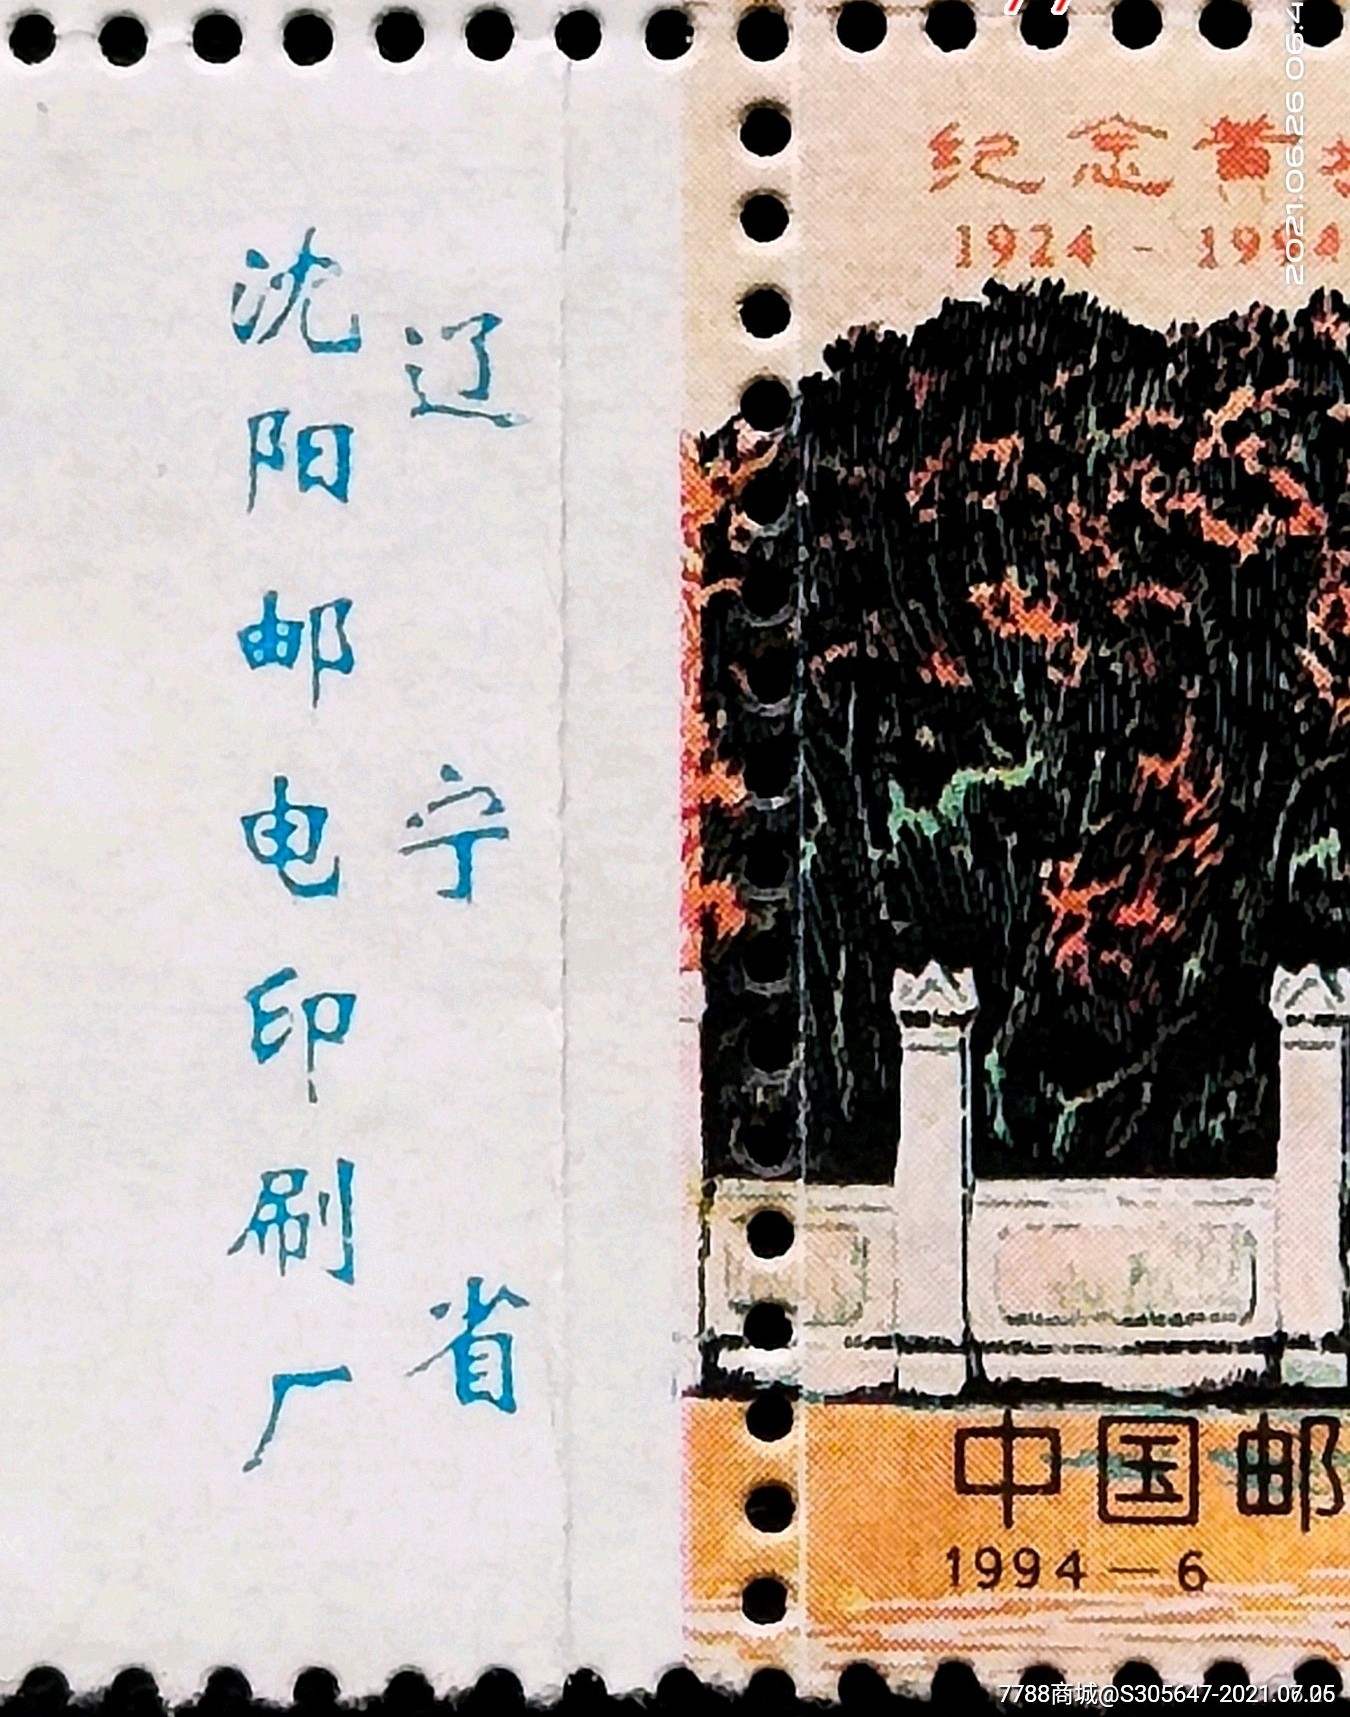 辽宁省
沈阳邮电印刷厂
纪念黄埔
1924-1994
中国邮
1994-6
2021.06.26 06:4
7788商城@S305647-2021.07.05